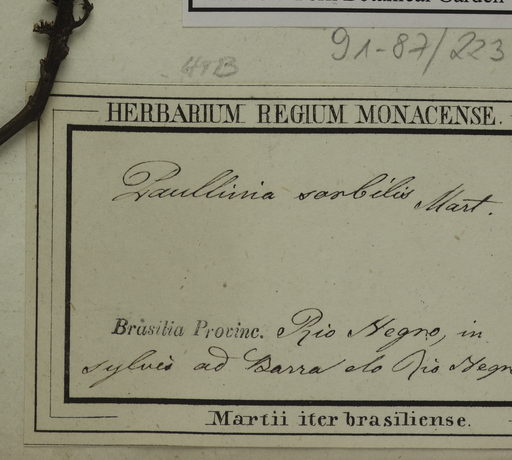 Botanical Garden
91-87/223
HERBARIUM REGIUM MONACENSE.
Paullinia sorbilis Mart.
Brasilia Provinc. Rio Negro, in
sylvis ad Barra do Rio Negro
Martii iter brasiliense.